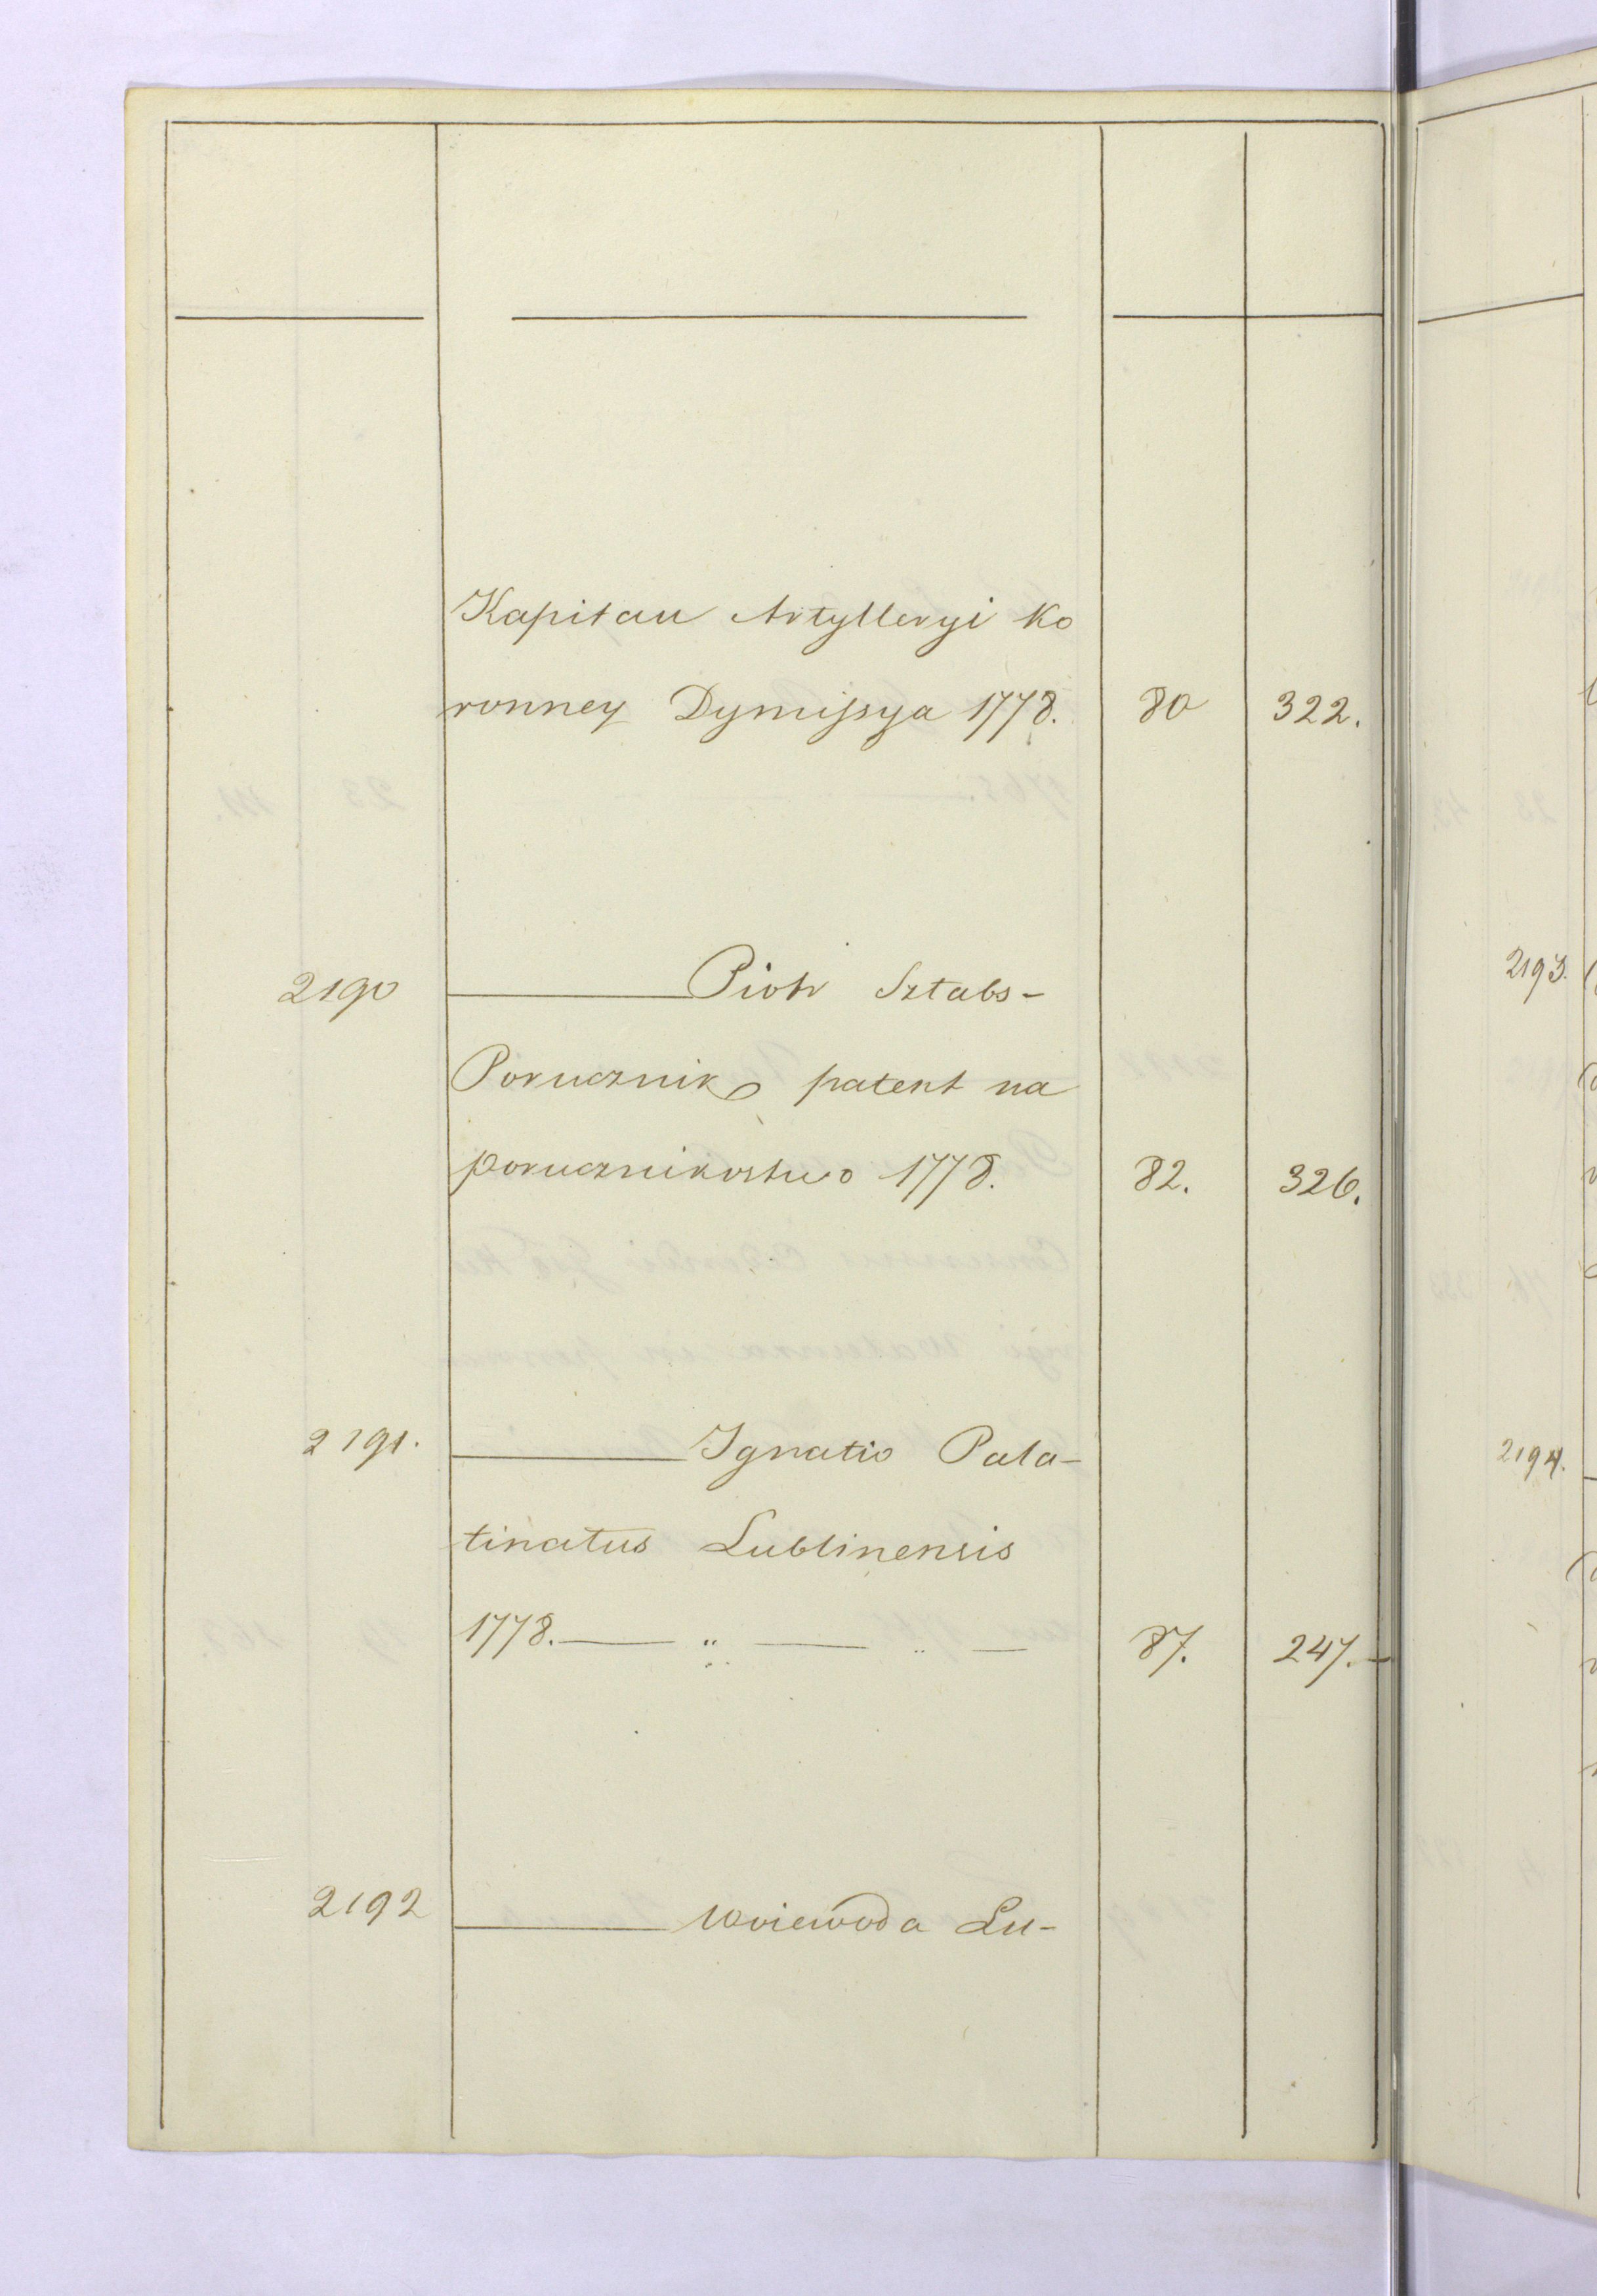 Kapitan Artylleryi Ko
ronney Dymissya 1778. 80 322.
2190 Piotr Sztabs-
Porucznik patent na
porucznikostwo 1778. 82. 326.
2191. Ignatio Pala-
tinatus Lublinensis
1778. — „ — „ — 87. 247.—
2192 Woiewoda Lu-
2193.
2194.